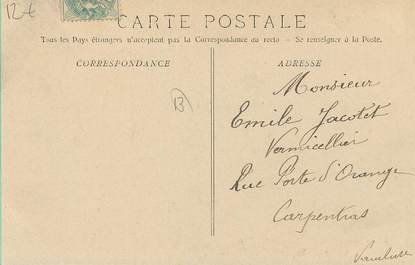 12 €
CARTE POSTALE
Tous les Pays étrangers n'acceptent pas la Correspondance au recto — Se renseigner à la Poste.
CORRESPONDANCE
ADRESSE
13
Monsieur
Emile Jacotet
Vermicellier
Rue Porte d'Orange
Carpentras
Vaucluse